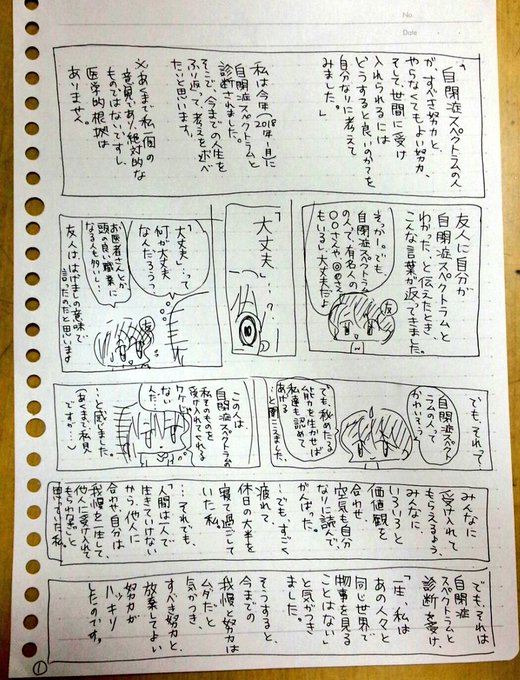 No.
Date
「自閉症スペクトラムの人
が、すべき努力と、
やらなくてもよい努力、
そして、世間に受け
入れられるには
どうすると良いのかを
自分なりに考えて
みました。」
私は今年(2018年)1月に
自閉症スペクトラムと
診断されました。
そこで、今までの人生を
ふり返って、考えを述べ
たいと思います。
※あくまで私一個の
意見であり、絶対的な
ものではないですし、
医学的根拠は
ありません。
友人に自分が
自閉症スペクトラムと
わかった、と伝えたとき、
こんな言葉が返ってきました。
そっかー。でも
自閉症スペクトラム
の人で、有名人の
〇〇さんや@@さん
もいるし、大丈夫だよ
友
「大丈夫」…?
「大丈夫」…って
何が大丈夫
なんだろう?
お医者さんとか
頭の良い職業に
なる人も多いし…
友
友人は、はげましの意味で
言ったのだと思います
でも、それって…
自閉症スペク
トラムの人って
かわいそう…
でも、秘めたる
能力を生かせば
私達も認めて
あげる
…と聞こえました。
この人は
自閉症スペクトラムの
私そのものを
受け入れてくれる
ワケじゃ
ないんだ…
…と感じました
(あくまで私見
ですが…)
みんなに
受け入れて
もらえるよう、
みんなに、
いろいろと
価値観を
合わせ、
空気も自分
なりに読んで、
がんばった。
…でも、すごく
疲れて、
休日の大半を
寝て過ごして
いた私。
…それでも、
「人間は一人で
生きていけない
から、他人に
合わせ、自分は
我慢を一生して
他人に受け入れて
もらわねば」と
思っていた私。
でも、それは
自閉症
スペクトラムと
診断を受け、
「一生、私は
あの人々と
同じ世界で
物事を見る
ことはない」
と気がつき
ました。
そうすると、
今までの
我慢と努力は
ムダだ、と
気がつき、
すべき努力と、
放棄してよい
努力が
ハッキリ
したのです。
①